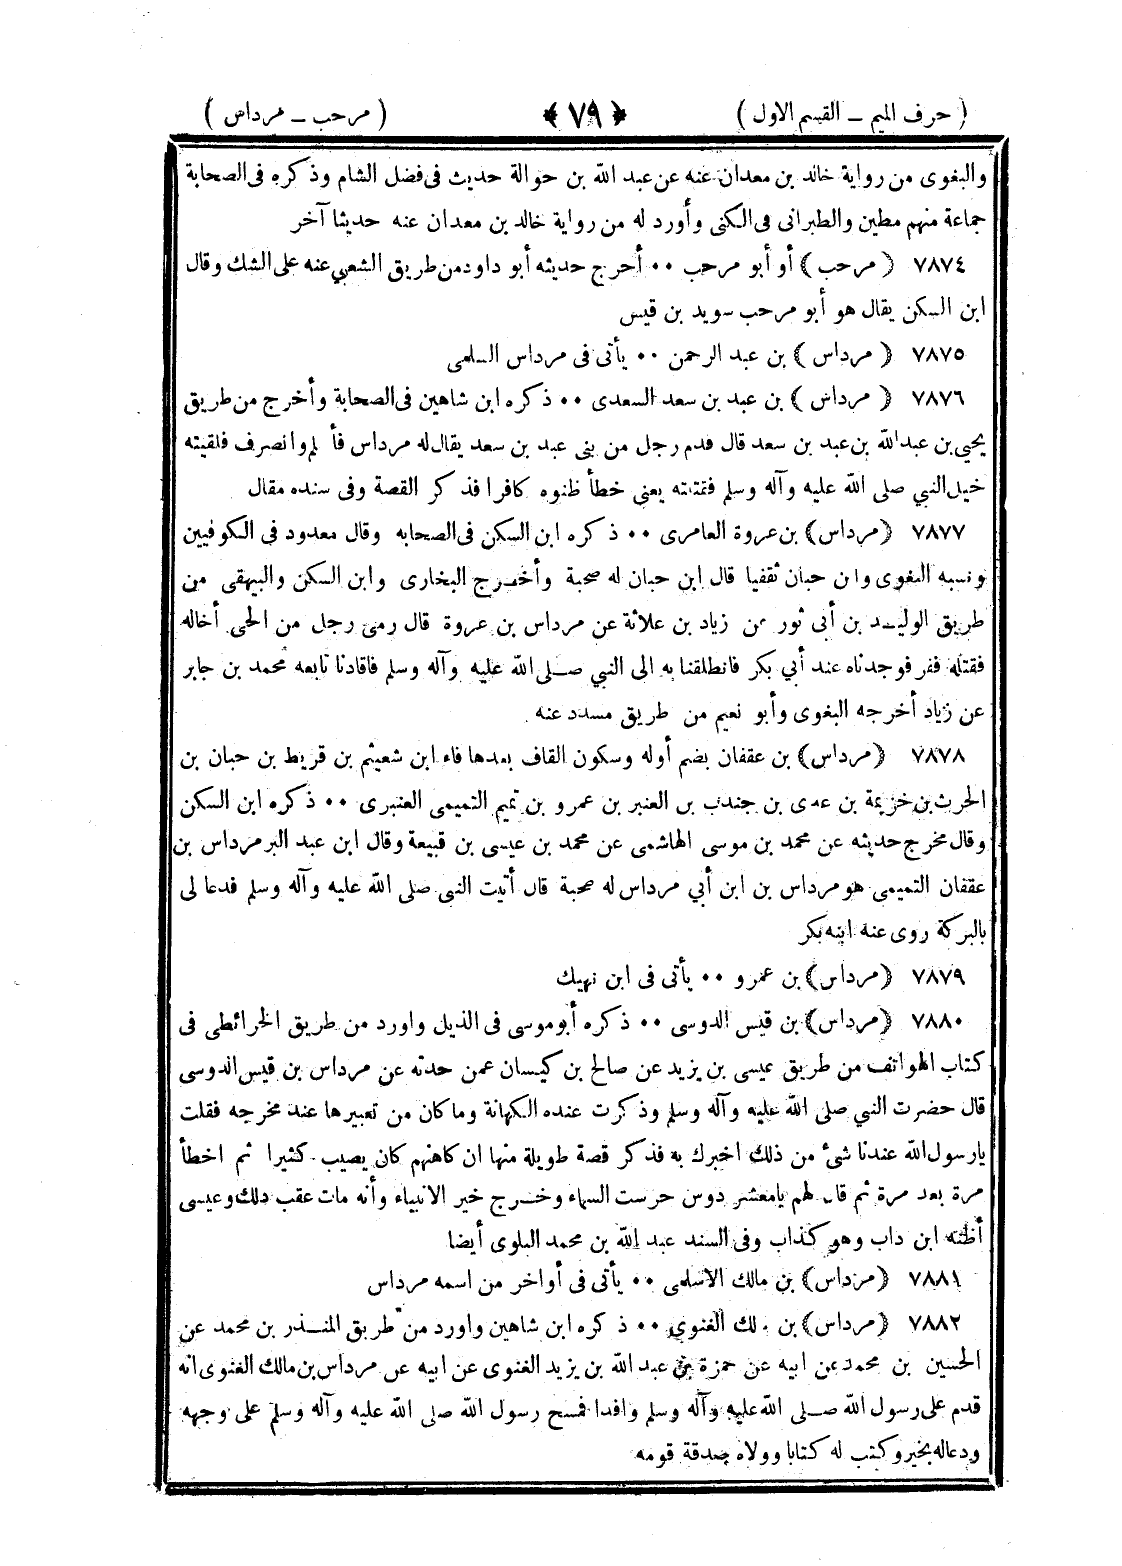 ( حرف الميم ــ القسم الاول ) ﴿ ٧٩ ﴾ ( مرحب ــ مرداس )
والبغوى من رواية خالد بن معدان عنه عن عبد الله بن حوالة حديث فى فضل الشام وذكره فى الصحابة
جماعة منهم مطين والطبرانى فى الكنى وأورد له من رواية خالد بن معدان عنه حديثا آخر
٧٨٧٤ ( مرحب ) أو أبو مرحب ٠٠ أخرج حديثه أبو داود من طريق الشعبي عنه على الشك وقال
ابن السكن يقال هو أبو مرحب سويد بن قيس
٧٨٧٥ ( مرداس ) بن عبد الرحمن ٠٠ يأتى فى مرداس السلمى
٧٨٧٦ ( مرداس ) بن عبد بن سعد السعدى ٠٠ ذكره ابن شاهين فى الصحابة وأخرج من طريق
يحيى بن عبد الله بن عبد بن سعد قال قدم رجل من بنى عبد بن سعد يقال له مرداس فأسلم وانصرف فلقيته
خيل النبي صلى الله عليه وآله وسلم فقتلته يعنى خطأ ظنوه كافرا فذكر القصة وفى سنده مقال
٧٨٧٧ (مرداس) بن عروة العامرى ٠٠ ذكره ابن السكن فى الصحابه وقال معدود فى الكوفيين
ونسبه البغوى وابن حبان ثقفيا قال ابن حبان له صحبة وأخرج البخارى وابن السكن والبيهقى من
طريق الوليد بن أبى ثور عن زياد بن علاثة عن مرداس بن عروة قال رمى رجل من الحى أخاله
فقتله ففر فوجدناه عند أبي بكر فانطلقنا به الى النبي صلى الله عليه وآله وسلم فاقادنا تابعه محمد بن جابر
عن زياد أخرجه البغوى وأبو نعيم من طريق مسدد عنه
٧٨٧٨ (مرداس) بن عقفان بضم أوله وسكون القاف بعدها فاء ابن شعيثم بن قريط بن حبان بن
الحرث بن خزيمة بن عدى بن جندب بن العنبر بن عمرو بن تميم التميمى العنبرى ٠٠ ذكره ابن السكن
وقال مخرج حديثه عن محمد بن موسى الهاشمى عن محمد بن عيسى بن قبيعة وقال ابن عبد البر مرداس بن
عقفان التميمى هو مرداس بن ابن أبي مرداس له صحبة قال أتيت النبى صلى الله عليه وآله وسلم فدعا لى
بالبركة روى عنه ابنه بكر
٧٨٧٩ (مرداس) بن عمرو ٠٠ يأتى فى ابن نهيك
٧٨٨٠ (مرداس) بن قيس الدوسى ٠٠ ذكره أبو موسى فى الذيل واورد من طريق الخرائطى فى
كتاب الهواتف من طريق عيسى بن يزيد عن صالح بن كيسان عمن حدثه عن مرداس بن قيس الدوسى
قال حضرت النبي صلى الله عليه وآله وسلم وذكرت عنده الكهانة وما كان من تعبيرها عند مخرجه فقلت
يارسول الله عندنا شئ من ذلك اخبرك به فذكر قصة طويلة منها ان كاهنهم كان يصيب كثيرا ثم اخطأ
مرة بعد مرة ثم قال لهم يامعشر دوس حرست السماء وخرج خير الانبياء وأنه مات عقب ذلك وعيسى
أظنه ابن داب وهو كذاب وفى السند عبد الله بن محمد البلوى أيضا
٧٨٨١ (مرداس) بن مالك الاسلمى ٠٠ يأتى فى أواخر من اسمه مرداس
٧٨٨٢ (مرداس) بن مالك الغنوي ٠٠ ذكره ابن شاهين واورد من طريق المنذر بن محمد عن
الحسين بن محمد عن ابيه عن حمزة بن عبد الله بن يزيد الغنوى عن ابيه عن مرداس بن مالك الغنوى انه
قدم على رسول الله صلى الله عليه وآله وسلم وافدا فمسح رسول الله صلى الله عليه وآله وسلم على وجهه
ودعاله بخير وكتب له كتابا وولاه صدقة قومه